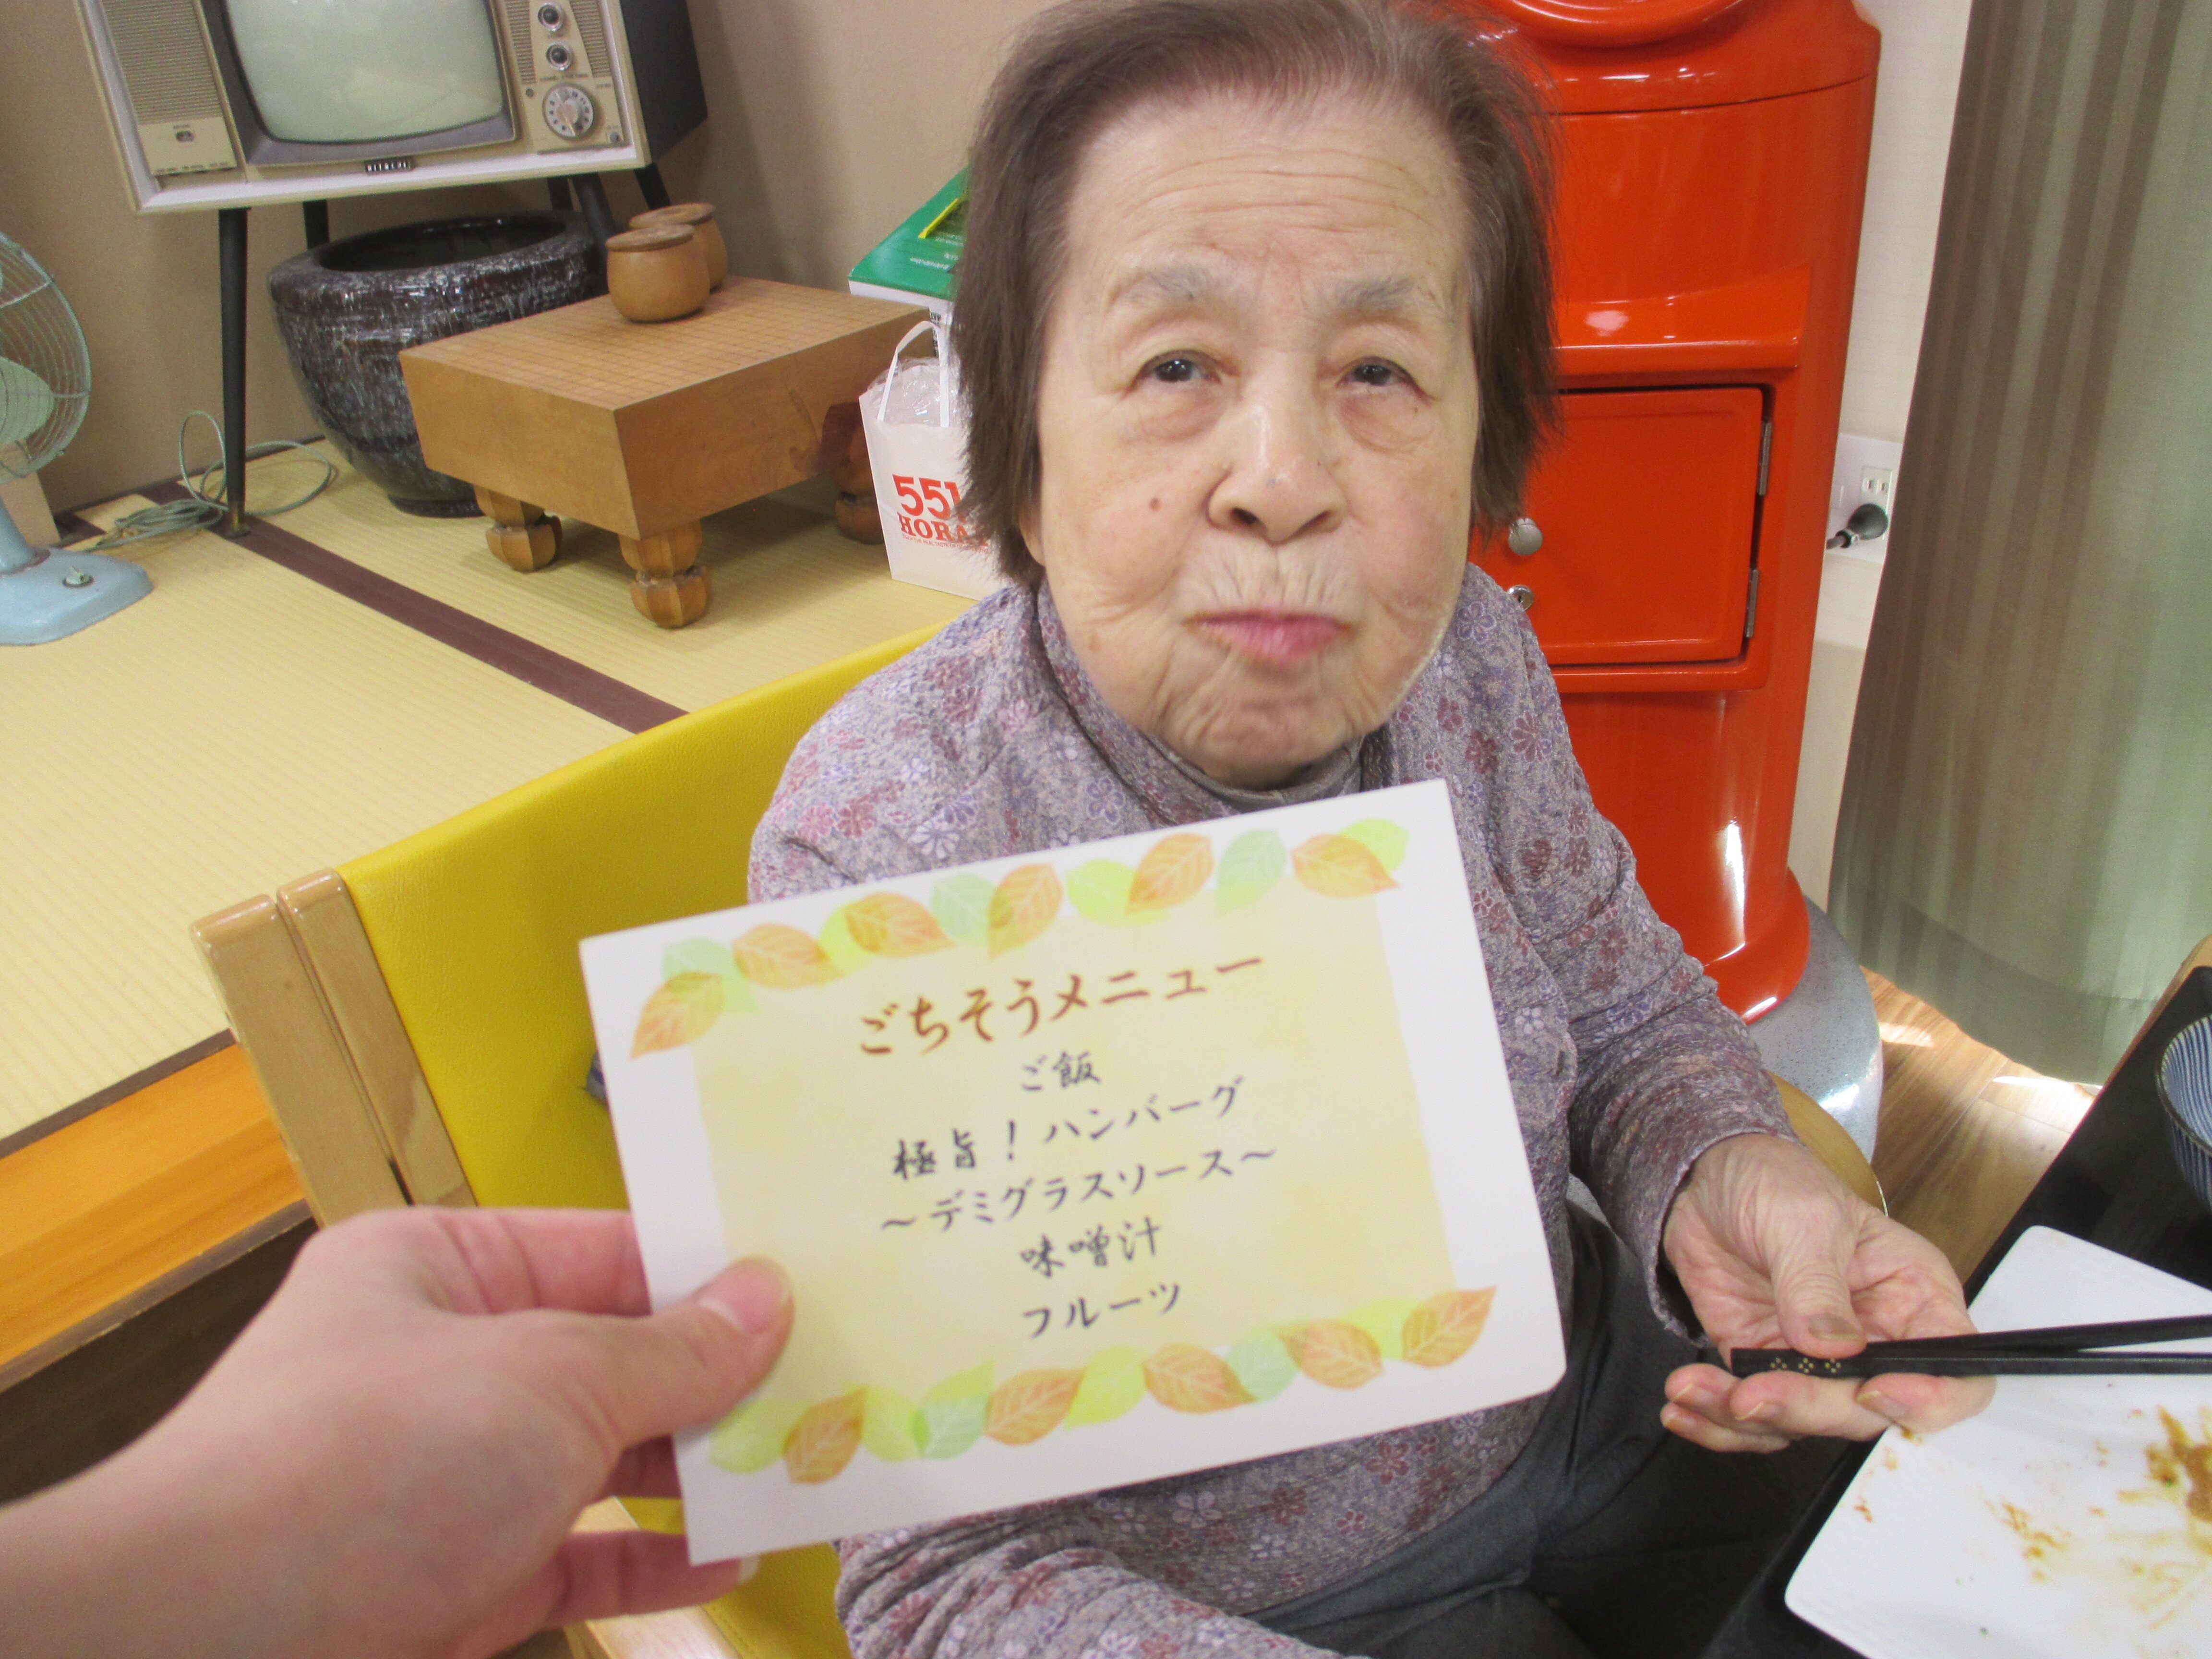 HITACHI
551
HORA
ごちそうメニュー
ご飯
極旨！ハンバーグ
～デミグラスソース～
味噌汁
フルーツ